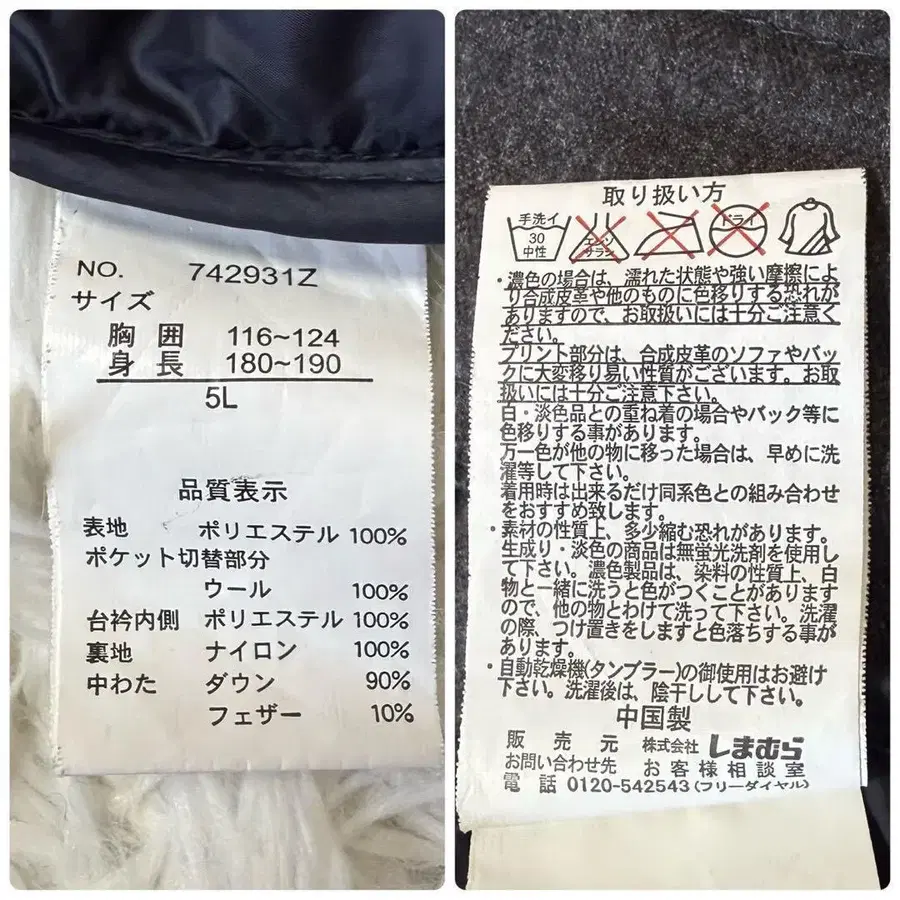 NO. 742931Z
サイズ
胸囲 116~124
身長 180~190
5L
品質表示
表地 ポリエステル 100%
ポケット切替部分
ウール 100%
台衿内側 ポリエステル 100%
裏地 ナイロン 100%
中わた ダウン 90%
フェザー 10%
取り扱い方
手洗イ 30 中性
エンソ サラシ
ドライ
・濃色の場合は、濡れた状態や強い摩擦によ
り合成皮革や他のものに色移りする恐れが
ありますので、お取扱いには十分ご注意く
ださい。
プリント部分は、合成皮革のソファやバッ
クに大変移り易い性質がございます。お取
扱いには十分ご注意下さい。
白・淡色品との重ね着の場合やバック等に
色移りする事があります。
万一色が他の物に移った場合は、早めに洗
濯等して下さい。
着用時は出来るだけ同系色との組み合わせ
をおすすめ致します。
・素材の性質上、多少縮む恐れがあります。
生成り・淡色の商品は無蛍光洗剤を使用し
て下さい。濃色製品は、染料の性質上、白
物と一緒に洗うと色がつくことがあります
ので、他の物とわけて洗って下さい。洗濯
の際、つけ置きをしますと色落ちする事が
あります。
・自動乾燥機(タンブラー)の御使用はお避け
下さい。洗濯後は、陰干しして下さい。
中国製
販売元 株式会社 しまむら
お問い合わせ先 お客様相談室
電話 0120-542543(フリーダイヤル)